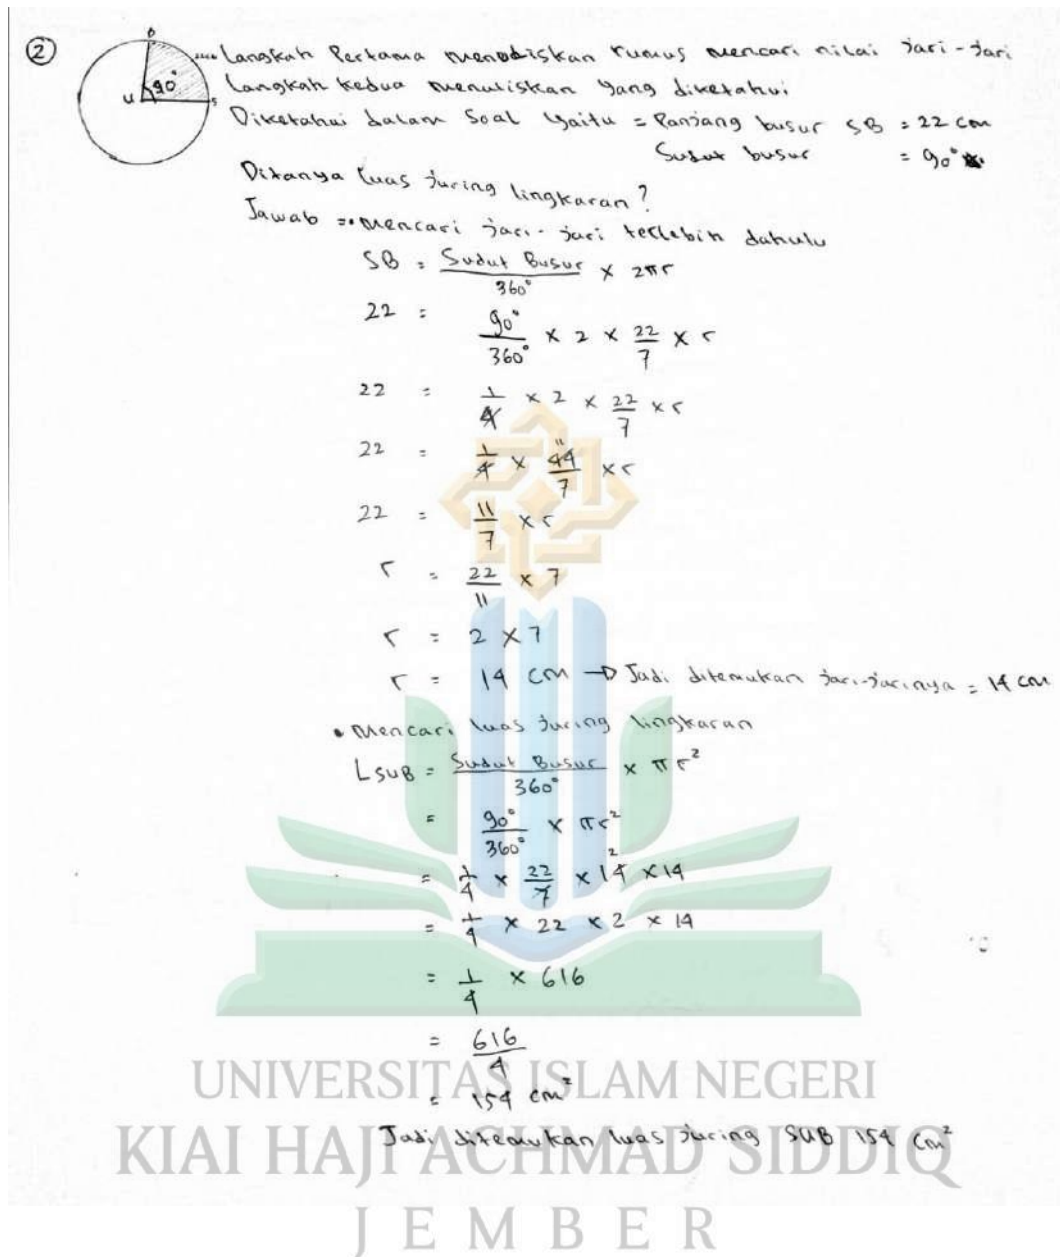 ②
B
90°
U
S
Langkah Pertama menuliskan rumus mencari nilai jari-jari
Langkah kedua menuliskan yang diketahui
Diketahui dalam soal yaitu = Panjang busur SB = 22 cm
Sudut busur = 90°
Ditanya luas juring lingkaran?
Jawab = • Mencari jari-jari terlebih dahulu
SB = Sudut Busur / 360° × 2πr
22 = 90° / 360° × 2 × 22/7 × r
22 = 1/4 × 2 × 22/7 × r
22 = 1/4 × 44/7 × r 11
22 = 11/7 × r
r = 22/11 × 7
r = 2 × 7
r = 14 cm → Jadi ditemukan jari-jarinya = 14 cm
• Mencari luas juring lingkaran
LSUB = Sudut Busur / 360° × πr²
= 90° / 360° × πr²
= 1/4 × 22/7 × 14 × 14 2
= 1/4 × 22 × 2 × 14
= 1/4 × 616
= 616/4
= 154 cm²
Jadi ditemukan luas juring SUB 154 cm²
UNIVERSITAS ISLAM NEGERI
KIAI HAJI ACHMAD SIDDIQ
JEMBER